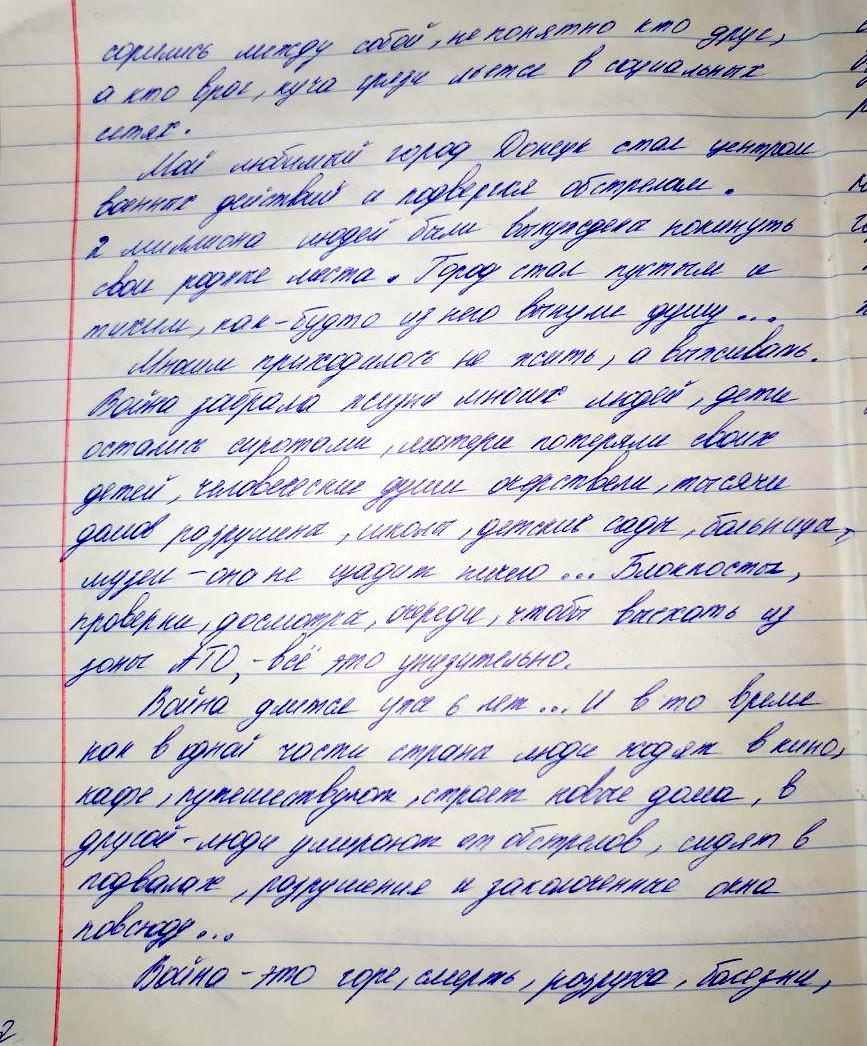 сорились между собой, не понятно кто друг,
а кто враг, куча грязи льётся в социальных
сетях.
Мой любимый город Донецк стал центром
военных действий и подвергся обстрелам.
2 миллиона людей были вынуждены покинуть
свои родные места. Город стал пустым и
тихим, как-будто из него вынули душу...
Многим приходилось не жить, а выживать.
Война забрала жизни многих людей, дети
остались сиротами, матери потеряли своих
детей, человеческие души очерствели, тысячи
домов разрушены, школы, детские сады, больницы,
музеи - она не щадит ничего... Блокпосты,
проверки, досмотры, очереди, чтобы выехать из
зоны АТО, - всё это унизительно.
Война длится уже 6 лет... И в то время
как в одной части страны люди ходят в кино,
кафе, путешествуют, строят новые дома, в
другой - люди умирают от обстрелов, сидят в
подвалах, разрушения и заколоченные окна
повсюду...
Война - это горе, смерть, разруха, болезни,
2